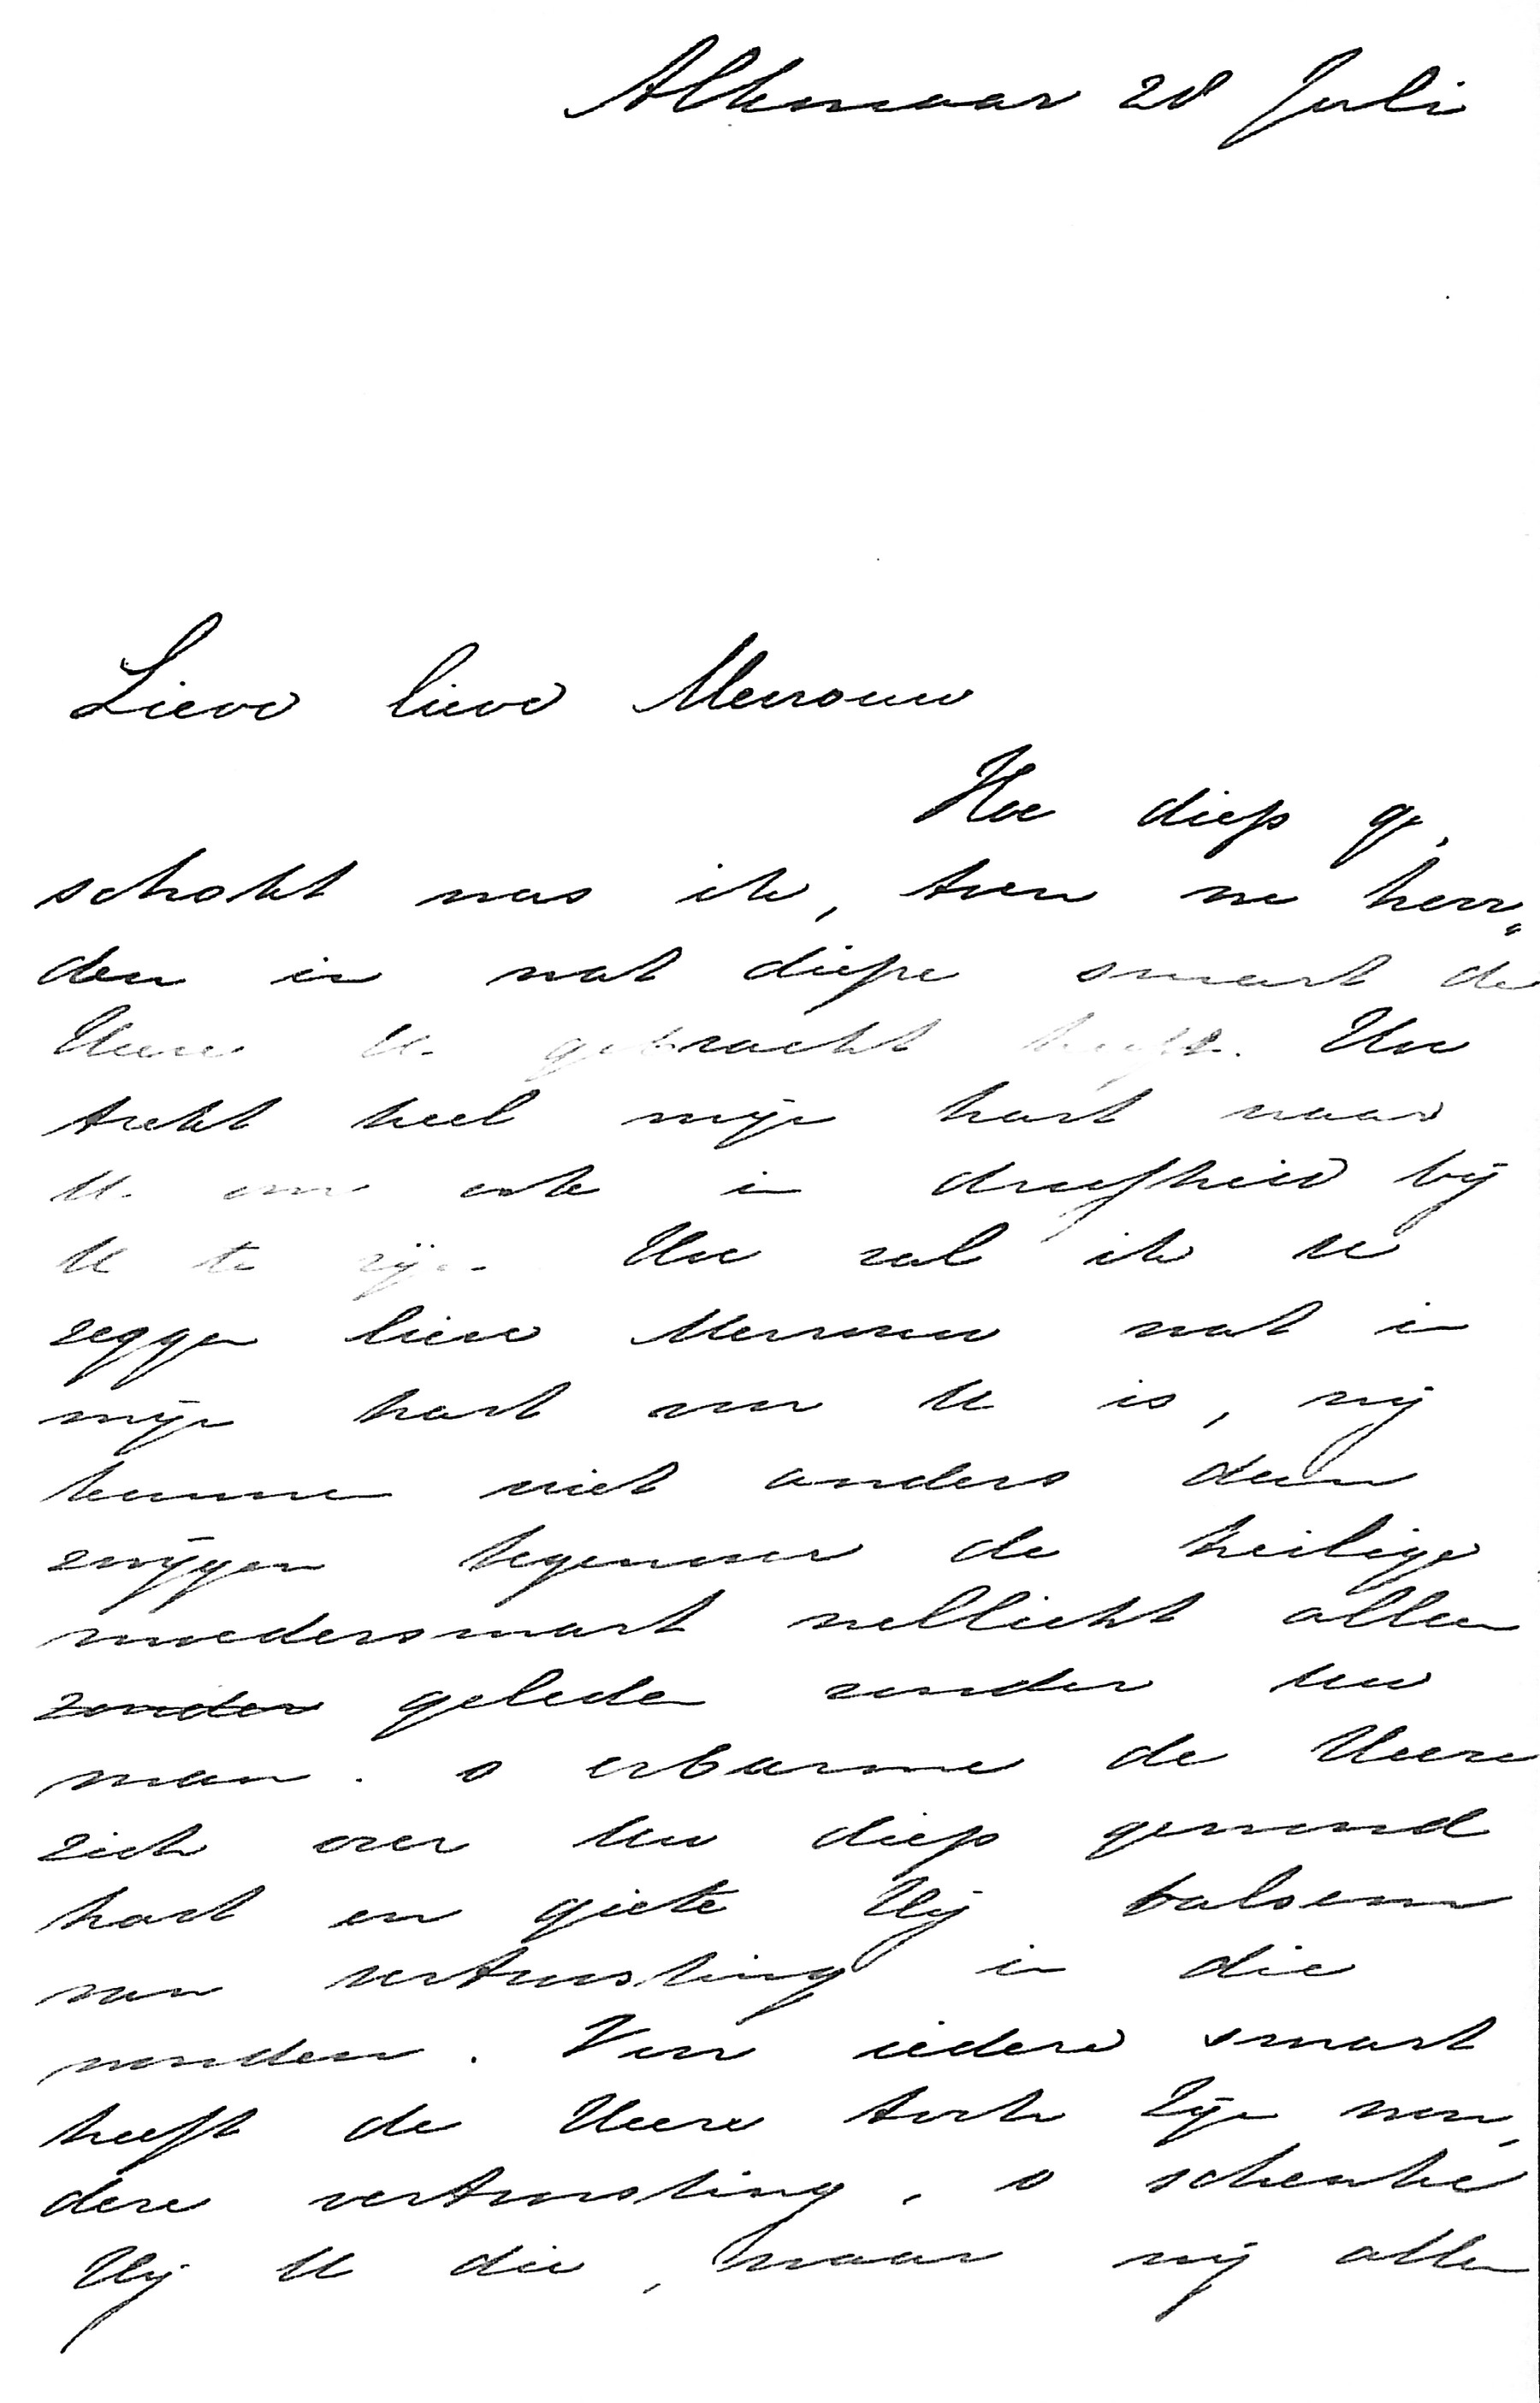 Alkmaar 28 Juli
Lieve lieve Mevrouw
Hoe diep ge„
schokt was ik, toen we hoor„
den in wat diepe smart de
Heere U gebracht heeft. Hoe
trekt heel mijn hart naar
U om ook in droefheid bij
U te zijn. Hoe zal ik U
zeggen lieve Mevrouw wat in
mijn hart voor U is, wij
kunnen niet anders dan
zwijgen tegenover de heilige
moedersmart wellicht alleen
zonder geleden zonder Uw
man. o erbarme de Heere
zich over Uw diep gewond
hart en giete Hij balsem
van vertroosting in die
wonden. Voor iedere smart
heeft de Heere toch Zijn won„
dere vertroosting, o schenke
Hij U die, maar wij allen